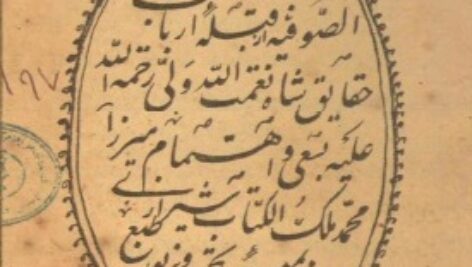 الصوفیه از قبله ارباب
حقایق شاه نعمت الله ولی رحمة الله
علیه بسعی و اهتمام میرزا
محمد ملک الکتاب شیرازی
طبع
۱۹۷